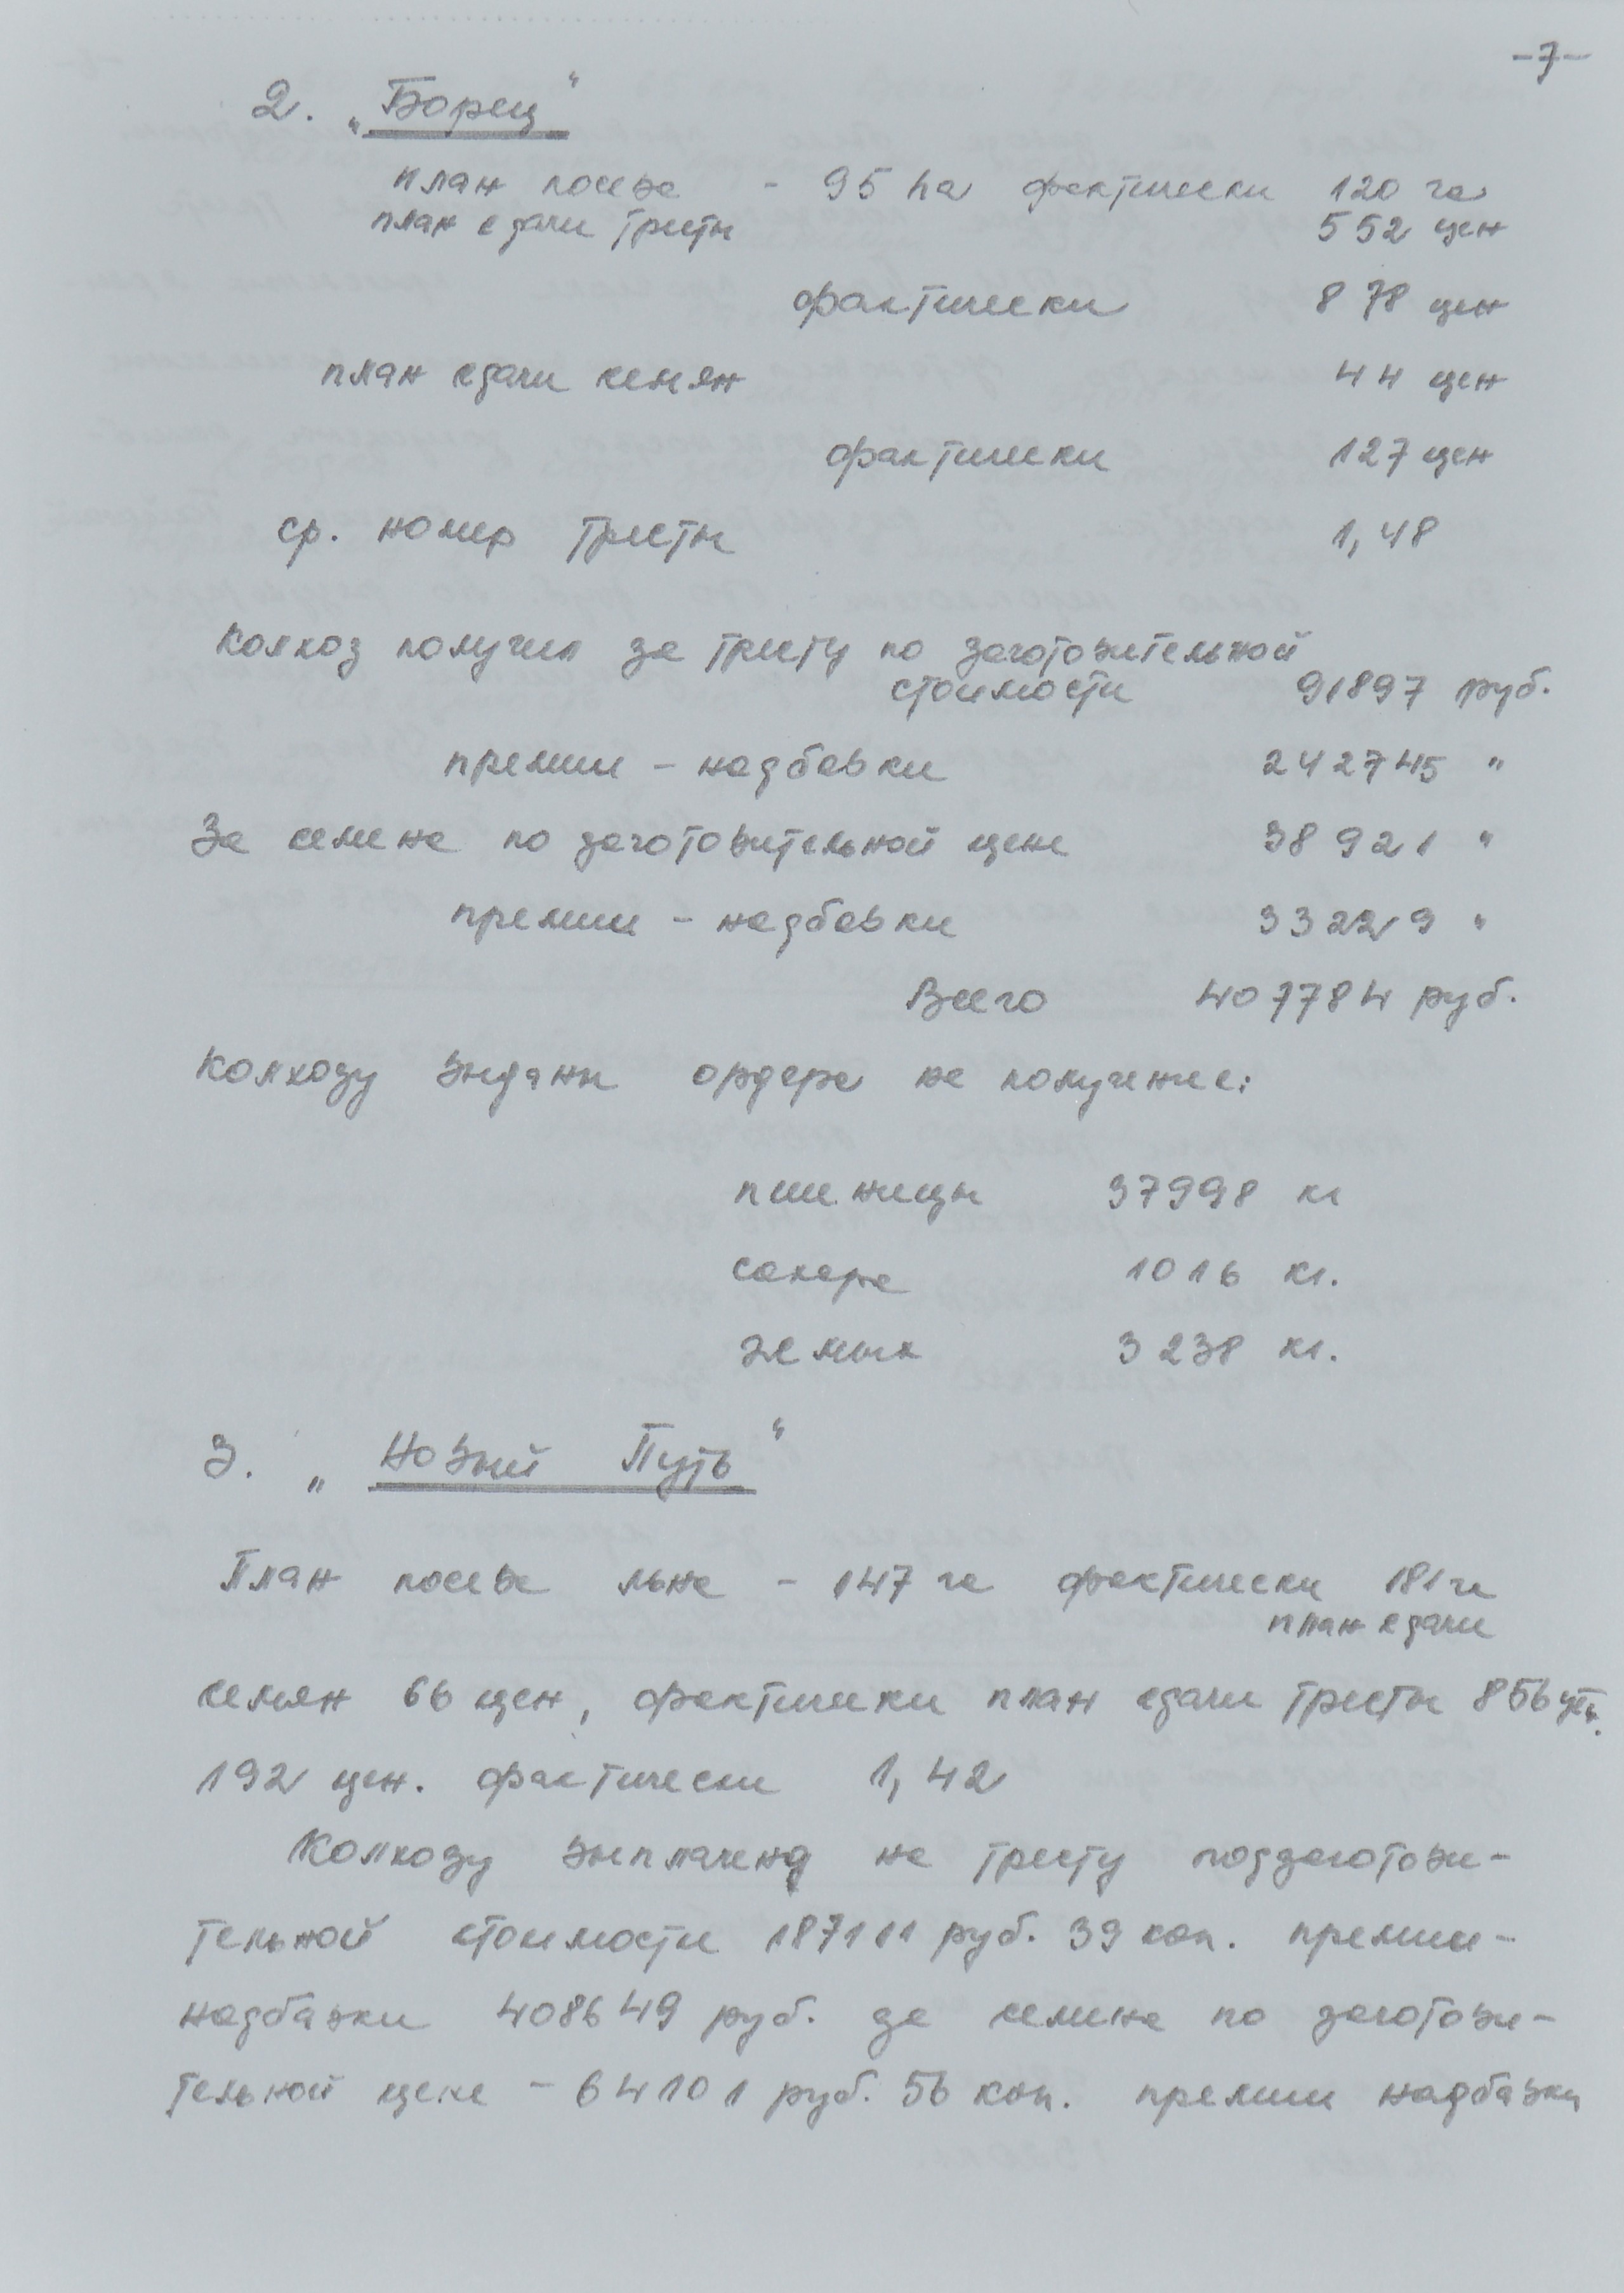 -7-
2. „Борец“
план посева - 95 ha фактически 120 га
план сдачи тресты 552 цен
фактически 878 цен
план сдачи семян 44 цен
фактически 127 цен
ср. номер тресты 1,48
Колхоз получил за тресту по заготовительной
стоимости 91897 руб.
премии - надбавки 242745 "
За семена по заготовительной цене 38921 "
премии - надбавки 33229 "
Всего 407784 руб.
Колхозу выданы ордера на получение:
пшеницы 37998 кг
сахара 1016 кг.
жмых 3238 кг.
3. „Новый Путь“
План посева льна - 147 га фактически 181 га
план сдачи
семян 66 цен, фактически план сдачи тресты 856 цен.
192 цен. фактически 1,42
Колхозу выплачено на тресту подзаготови-
тельной стоимости 187111 руб. 39 коп. премии-
надбавки 408649 руб. за семена по заготови-
тельной цене - 64101 руб. 56 коп. премии надбавки